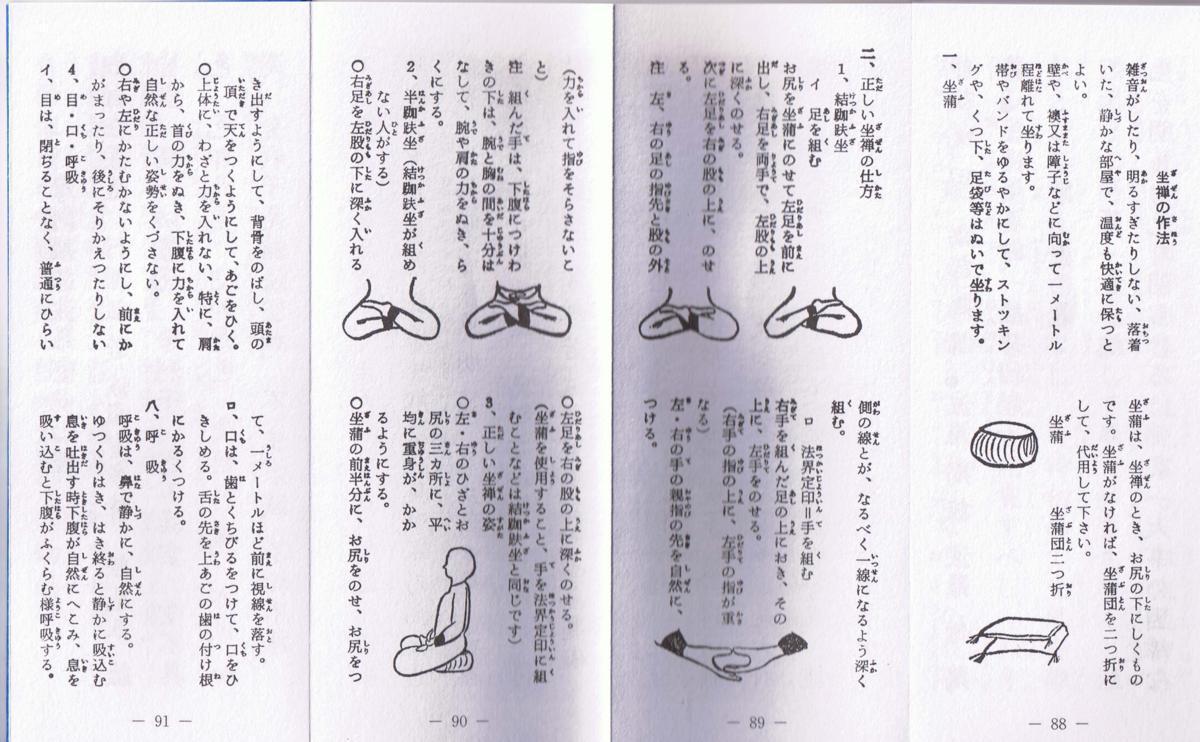 坐禅の作法
雑音がしたり、明るすぎたりしない、落着
いた、静かな部屋で、温度も快適に保つと
よい。
壁や、襖又は障子などに向って一メートル
程離れて坐ります。
帯やバンドをゆるやかにして、ストツキン
グや、くつ下、足袋等はぬいで坐ります。
一、坐蒲
坐蒲は、坐禅のとき、お尻の下にしくもの
です。坐蒲がなければ、坐蒲団を二つ折に
して、代用して下さい。
坐蒲　坐蒲団二つ折
— 88 —
二、正しい坐禅の仕方
1、結跏趺坐
イ　足を組む
お尻を坐蒲にのせて左足を前に
出し、右足を両手で、左股の上
に深くのせる。
次に左足を右の股の上に、のせ
る。
注　左、右の足の指先と股の外
側の線とが、なるべく一線になるよう深く
組む。
ロ　法界定印＝手を組む
右手を組んだ足の上におき、その
上に、左手をのせる。
（右手の指の上に、左手の指が重
なる）
左・右の手の親指の先を自然に、
つける。
— 89 —
（力を入れて指をそらさないこ
と）
注　組んだ手は、下腹につけわ
きの下は、腕と胸の間を十分は
なして、腕や肩の力をぬき、ら
くにする。
2、半跏趺坐（結跏趺坐が組め
ない人がする）
○右足を左股の下に深く入れる
○左足を右の股の上に深くのせる。
（坐蒲を使用すること、手を法界定印に組
むことなどは結跏趺坐と同じです）
3、正しい坐禅の姿
○左・右のひざとお
尻の三カ所に、平
均に重身が、かか
るようにする。
○坐蒲の前半分に、お尻をのせ、お尻をつ
— 90 —
き出すようにして、背骨をのばし、頭の
頂で天をつくようにして、あごをひく。
○上体に、わざと力を入れない、特に、肩
から、首の力をぬき、下腹に力を入れて
自然な正しい姿勢をくづさない。
○右や左にかたむかないようにし、前にか
がまったり、後にそりかえつたりしない
4、目・口・呼吸
イ、目は、閉ぢることなく、普通にひらい
て、一メートルほど前に視線を落す。
ロ、口は、歯とくちびるをつけて、口をひ
きしめる。舌の先を上あごの歯の付け根
にかるくつける。
ハ、呼　吸
呼吸は、鼻で静かに、自然にする。
ゆつくりはき、はき終ると静かに吸込む
息を吐出す時下腹が自然にへこみ、息を
吸い込むと下腹がふくらむ様呼吸する。
— 91 —